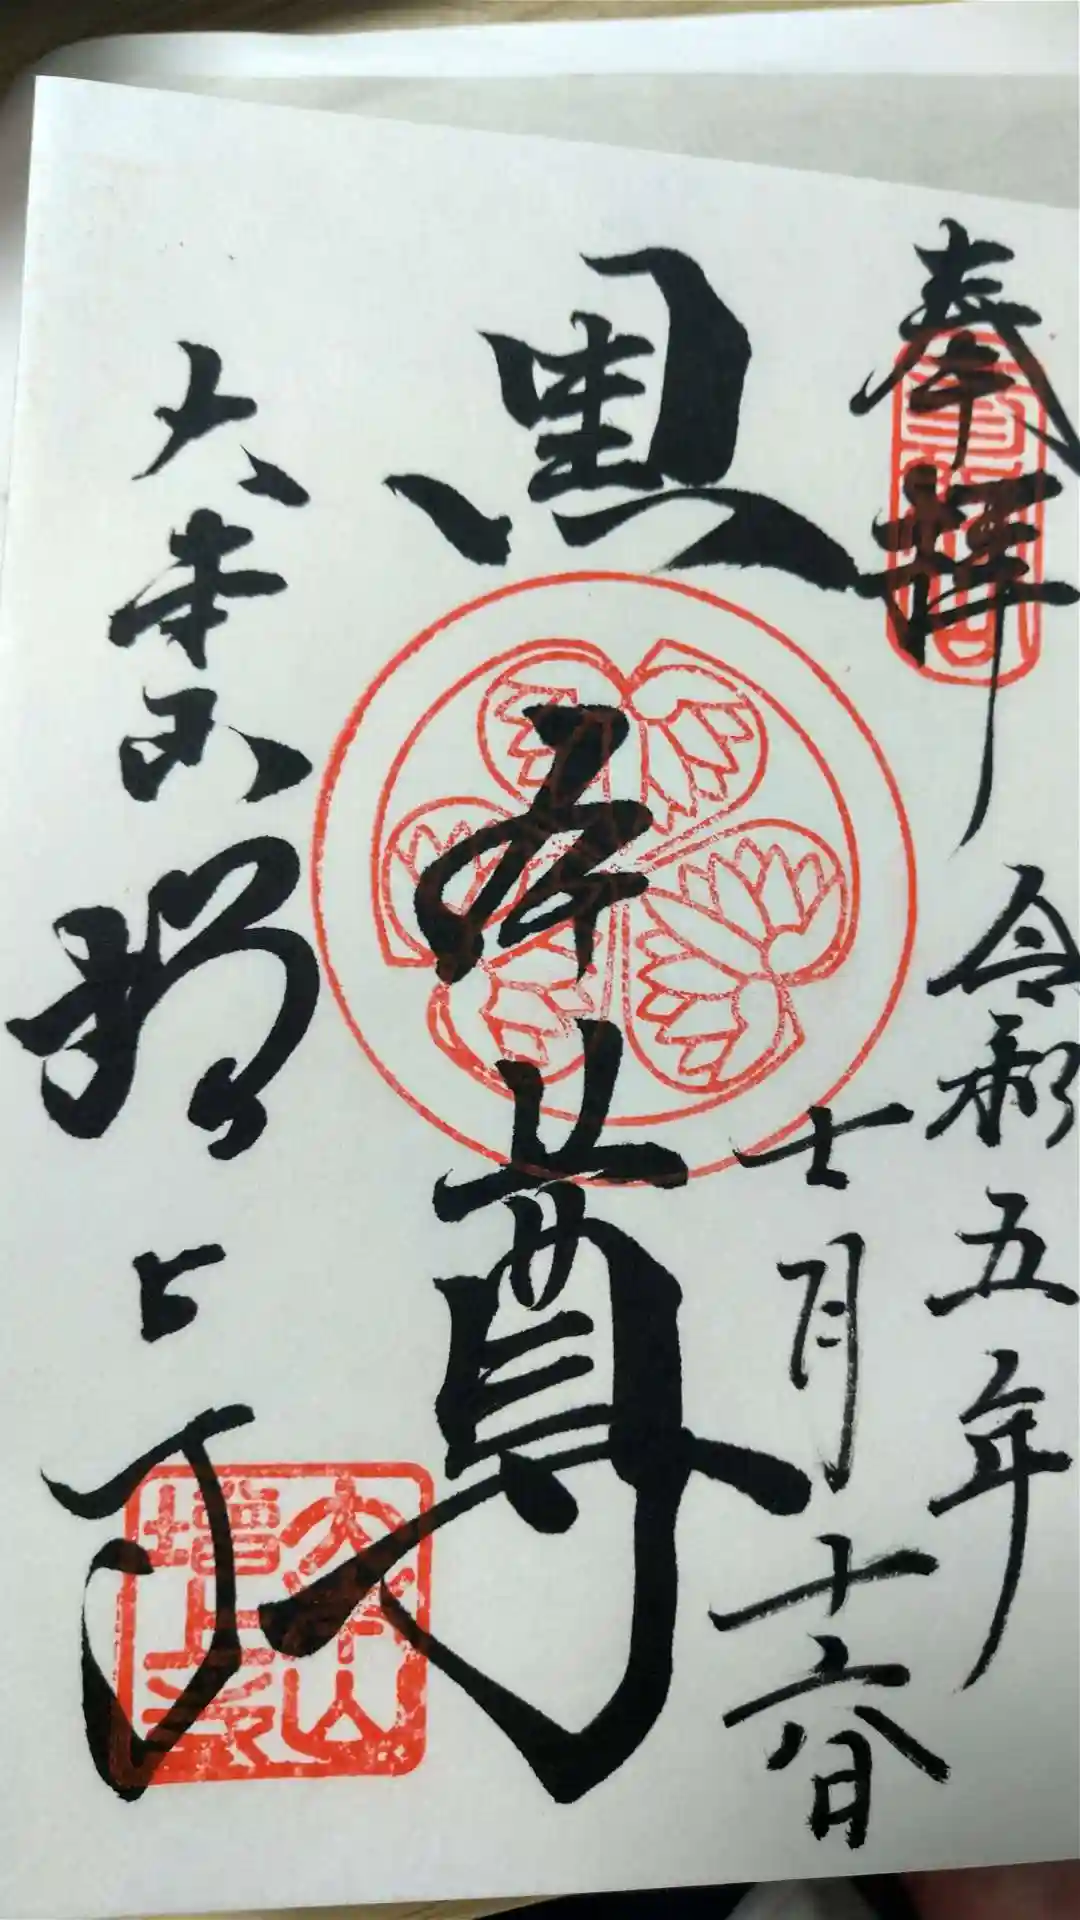 奉拝
令和五年
七月十六日
黒本尊
大本山
増上寺
大本山
増上寺